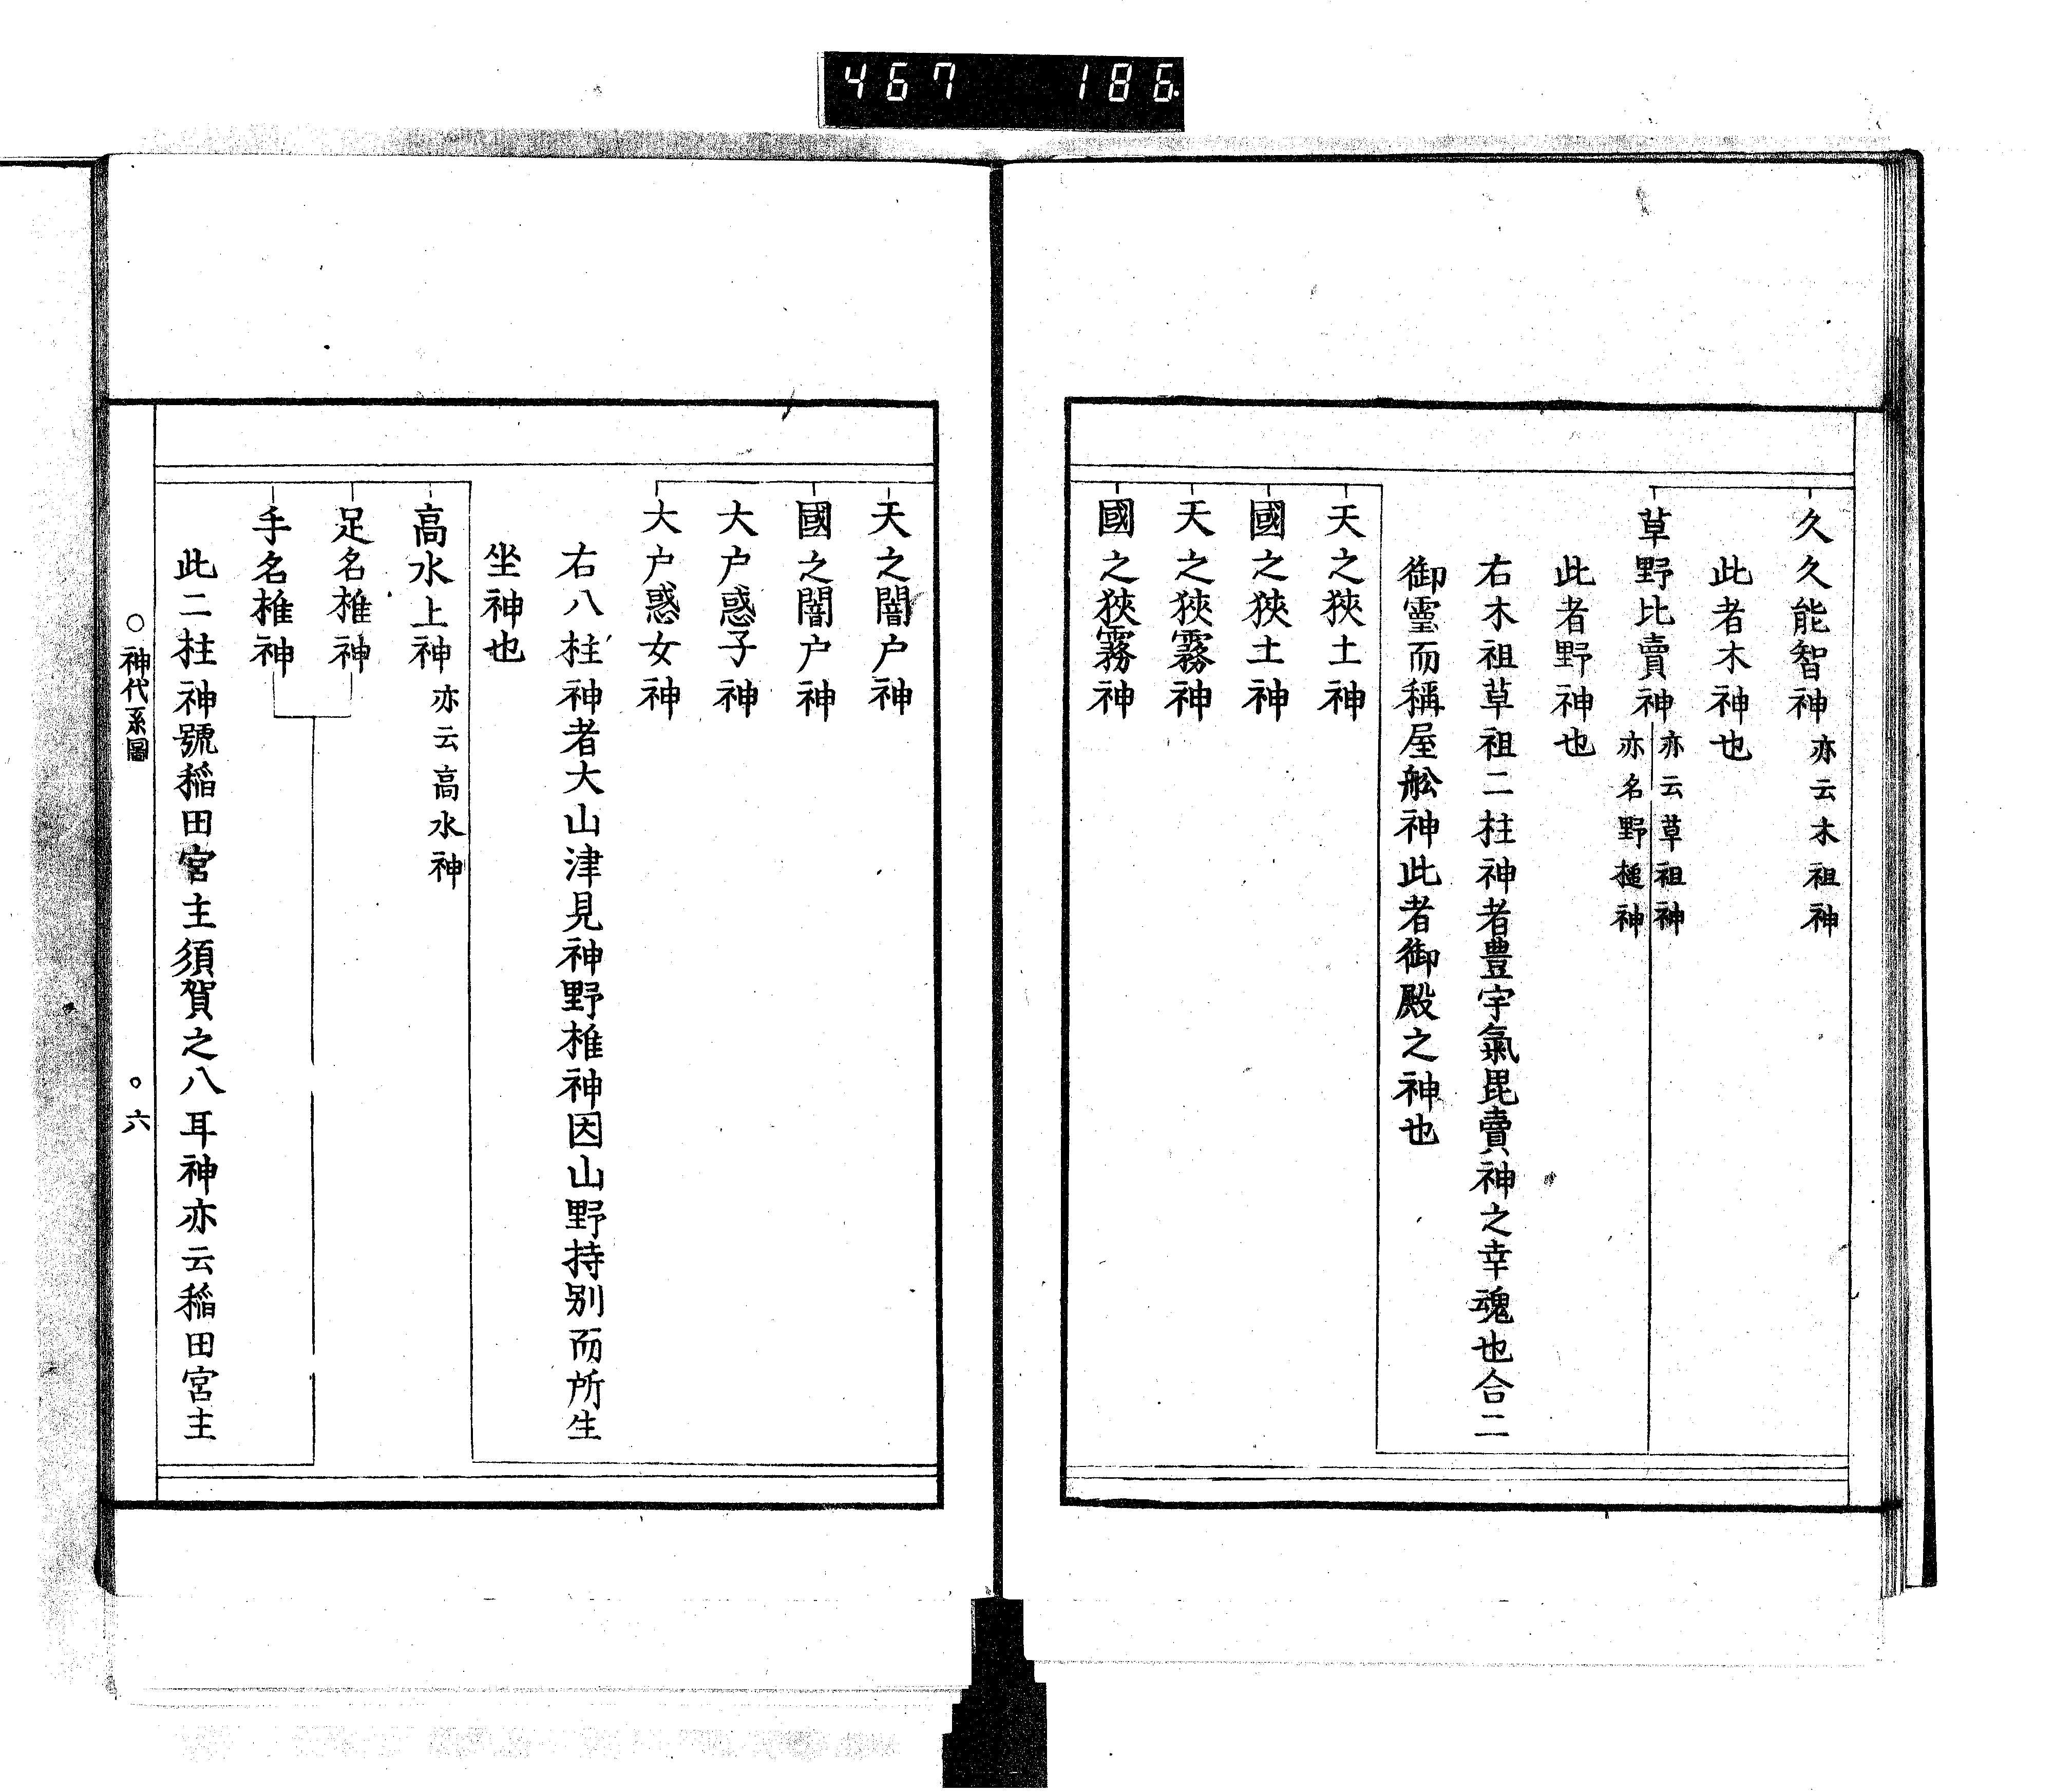 467 186
久久能智神 亦云木祖神
此者木神也
草野比賣神 亦云草祖神
亦名野槌神
此者野神也
右木祖草祖二柱神者豊宇氣毘賣神之幸魂也合二
御靈而稱屋舩神此者御殿之神也
天之狹土神
國之狹土神
天之狹霧神
國之狹霧神
天之闇户神
國之闇户神
大户惑子神
大户惑女神
右八柱神者大山津見神野椎神因山野持别而所生
坐神也
高水上神 亦云高水神
足名椎神
手名椎神
此二柱神號稲田宮主須賀之八耳神亦云稲田宮主
○神代系圖 ○六